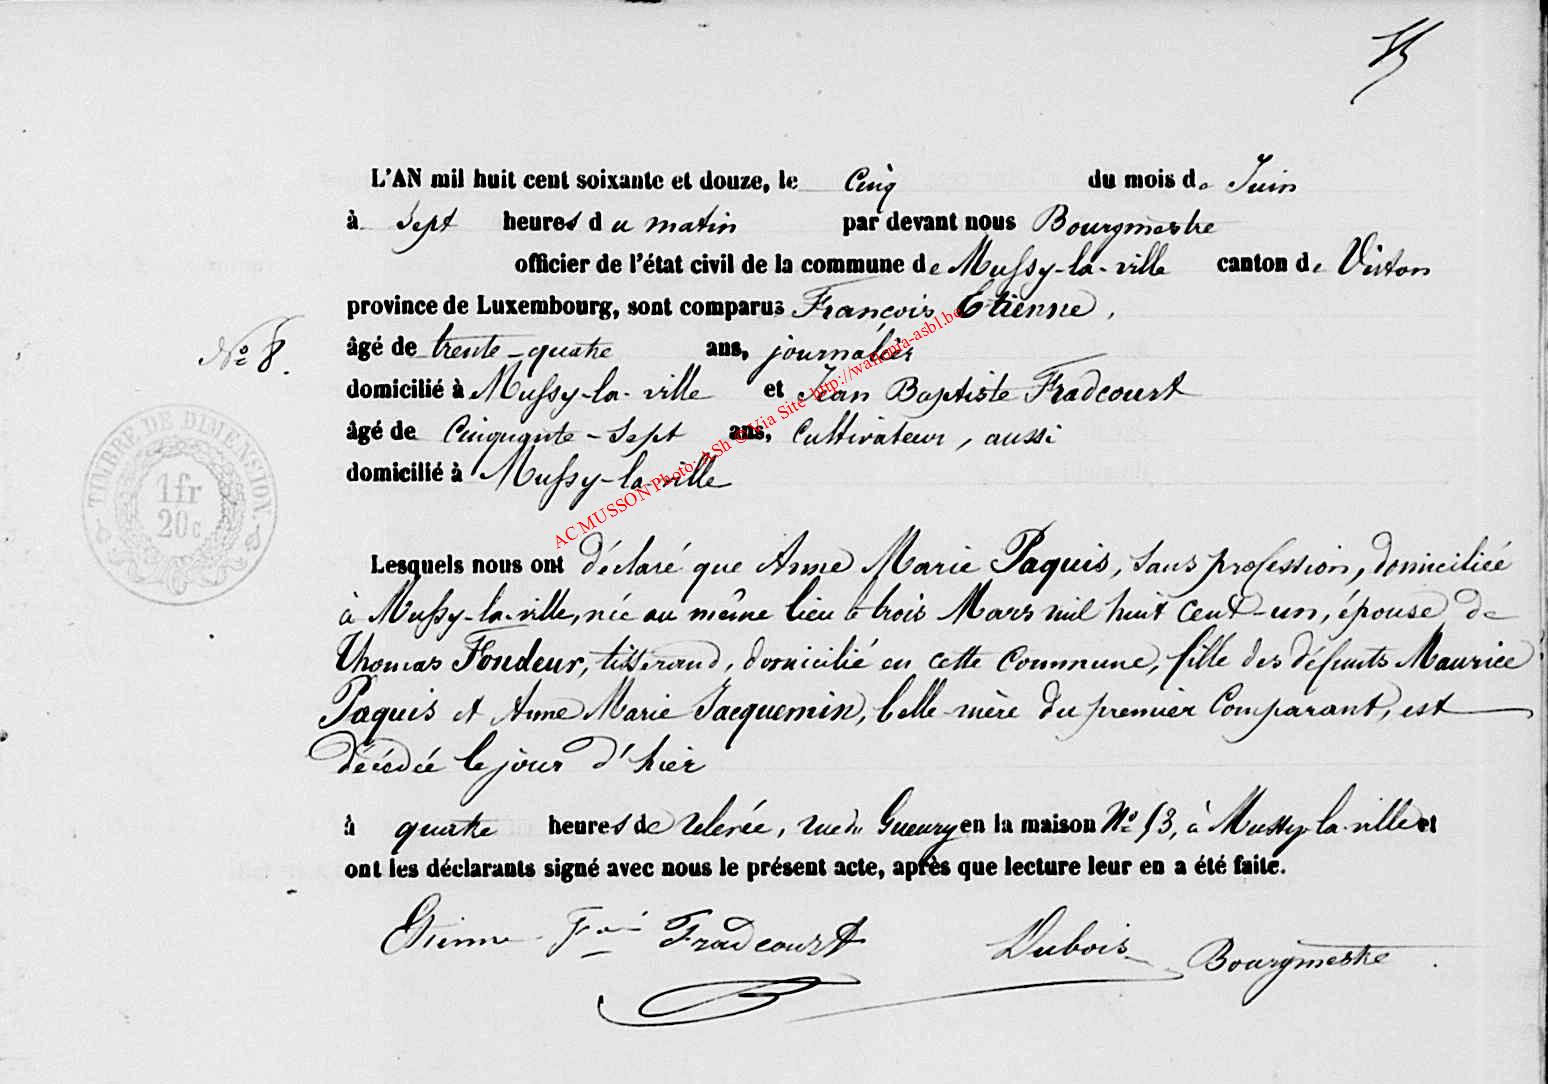 L'AN mil huit cent soixante et douze, le Cinq du mois de Juin
à Sept heures du matin par devant nous Bourgmestre
officier de l'état civil de la commune de Mussy-la-ville canton de Virton
province de Luxembourg, sont comparus François Etienne,
No 8.
âgé de trente-quatre ans, journalier
domicilié à Mussy-la-ville et Jean Baptiste Fradcourt
âgé de Cinquante-Sept ans, Cultivateur, aussi
domicilié à Mussy-la-ville
TIMBRE DE DIMENSION
1fr
20c
AC MUSSON Photo: ASh © Via Site http://wallonia-asbl.be
Lesquels nous ont déclaré que Anne Marie Paquis, sans profession, domiciliée
à Mussy-la-ville, née au même lieu le trois Mars mil huit cent-un, épouse de
Thomas Fondeur, tisserand, domicilié en cette Commune, fille des défunts Maurice
Paquis et Anne Marie Jacquemin, belle-mère du premier Comparant, est
décédée le jour d'hier
à quatre heures de relevée, rue du Gueury en la maison No 53, à Mussy-la-ville et
ont les déclarants signé avec nous le présent acte, après que lecture leur en a été faite.
Etienne Fois Fradcourt Dubois Bourgmestre